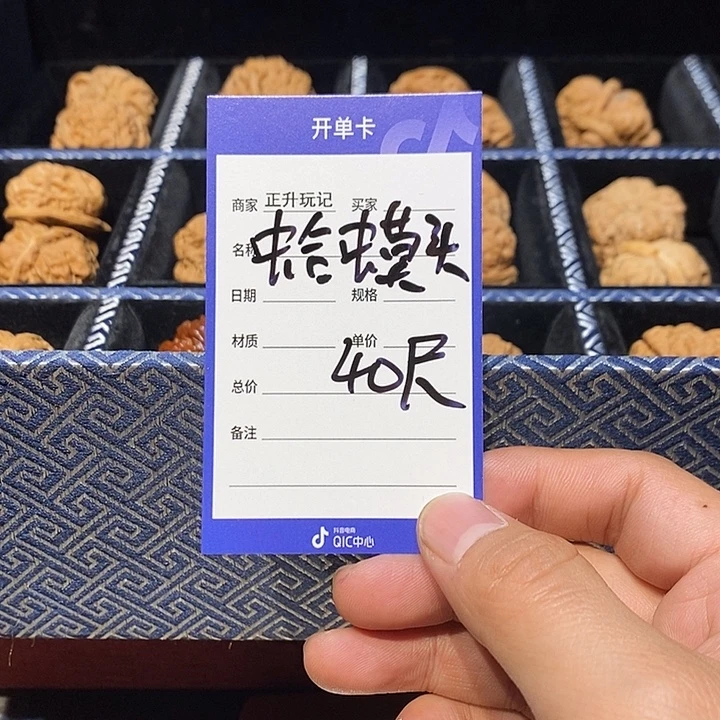 开单卡
商家 正升玩记 买家
名称 蛤蟆头
日期 规格
材质 单价
40尺
总价
备注
抖音电商
QIC中心